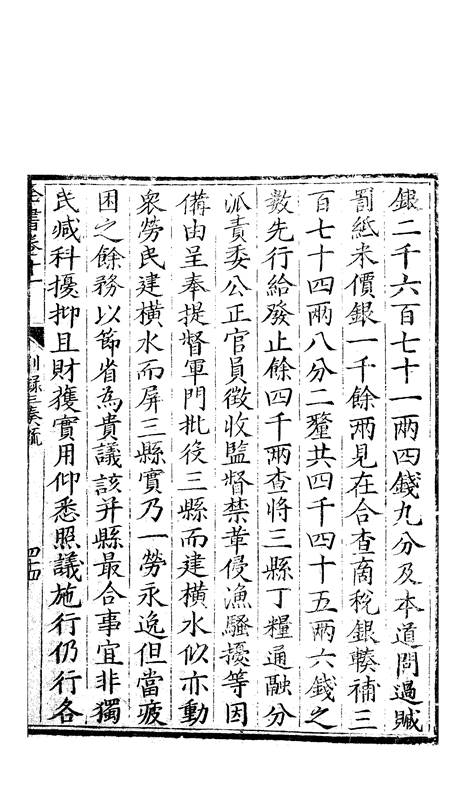 銀二千六百七十一兩四錢九分及本道問過贓
罰紙米價銀一千餘兩見在合查商稅銀輳補三
百七十四兩八分二釐共四千四十五兩六錢之
數先行給發止餘四千兩查將三縣丁糧通融分
派責委公正官員徵收監督禁革侵漁騷擾等因
備由呈奉提督軍門批役三縣而建橫水似亦動
衆勞民建橫水而屏三縣實乃一勞永逸但當疲
困之餘務以節省為貴議該并縣最合事宜非獨
民减科擾抑且財獲實用仰悉照議施行仍行各
全書卷十一
別錄三奏疏
四十四